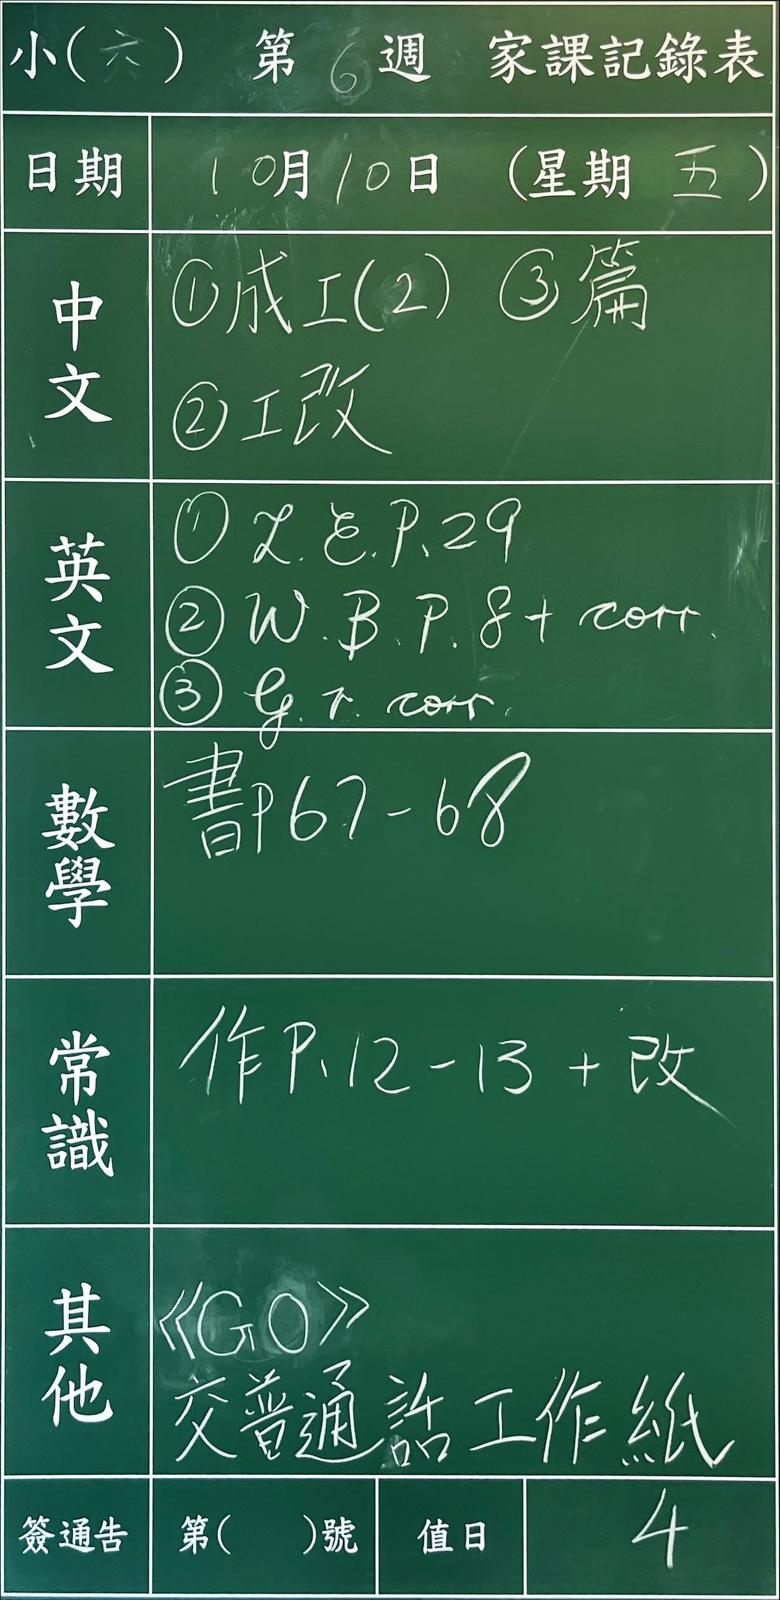 小(六) 第6週 家課記錄表
日期 10月10日 (星期五)
中文
①成工(2) ③篇
②工改
英文
① L.E.P.29
② W.B.P.8+ corr.
③ G.r. corr.
數學
書P67-68
常識
作P.12-13+改
其他
《GO》
交普通話工作紙
簽通告 第( )號 值日 4